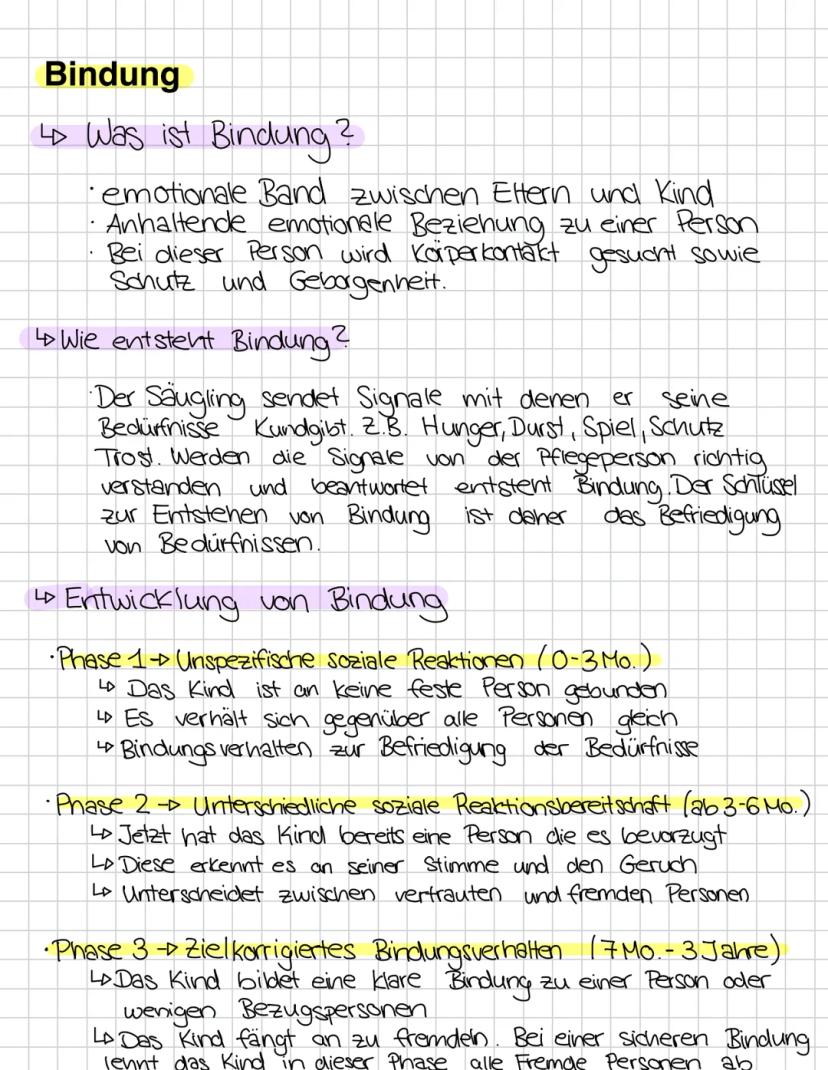 Bindung
↳ Was ist Bindung?
· emotionale Band zwischen Eltern und Kind
· Anhaltende emotionale Beziehung zu einer Person
· Bei dieser Person wird Körperkontakt gesucht sowie
Schutz und Geborgenheit.
↳ Wie entsteht Bindung?
· Der Säugling sendet Signale mit denen er seine
Bedürfnisse Kundgibt. Z.B. Hunger, Durst, Spiel, Schutz
Trost. Werden die Signale von der Pflegeperson richtig
verstanden und beantwortet entsteht Bindung. Der Schlüsel
zur Entstehen von Bindung ist daher das Befriedigung
von Bedürfnissen.
↳ Entwicklung von Bindung
· Phase 1 → Unspezifische soziale Reaktionen (0-3 Mo.)
↳ Das Kind ist an keine feste Person gebunden
↳ Es verhält sich gegenüber alle Personen gleich
↳ Bindungsverhalten zur Befriedigung der Bedürfnisse
· Phase 2 → Unterschiedliche soziale Reaktionsbereitschaft (ab 3-6 Mo.)
↳ Jetzt hat das Kind bereits eine Person die es bevorzugt
↳ Diese erkennt es an seiner Stimme und den Geruch
↳ Unterscheidet zwischen vertrauten und fremden Personen
· Phase 3 → Zielkorrigiertes Bindungsverhalten (7 Mo. - 3 Jahre)
↳ Das Kind bildet eine klare Bindung zu einer Person oder
wenigen Bezugspersonen
↳ Das Kind fängt an zu fremdeln. Bei einer sicheren Bindung
lehnt das Kind in dieser Phase alle Fremde Personen ab